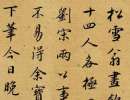 松雪翁盡
十四人各極
劉宗兩以事
不易得余寶
下筆今日晚